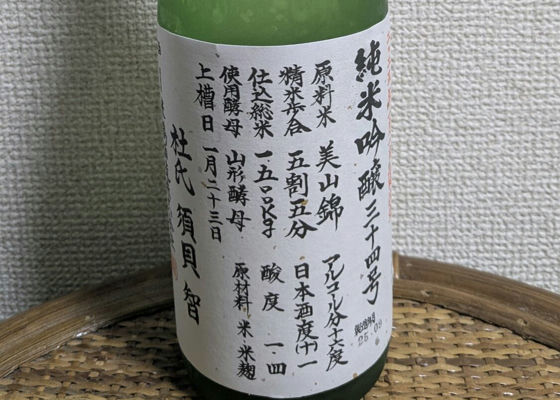 純米吟醸三十四号
原料米 美山錦
精米歩合 五割五分
仕込総米 一五〇〇Kg
使用酵母 山形酵母
上槽日 一月二十三日
アルコル分十六度
日本酒度(十)一
酸度 一・四
原材料 米・米麹
杜氏 須貝 智
製造年月
25.09